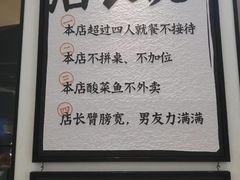 一 本店超过四人就餐不接待
二 本店不拼桌、不加位
三 本店酸菜鱼不外卖
四 店长臂膀宽，男友力满满